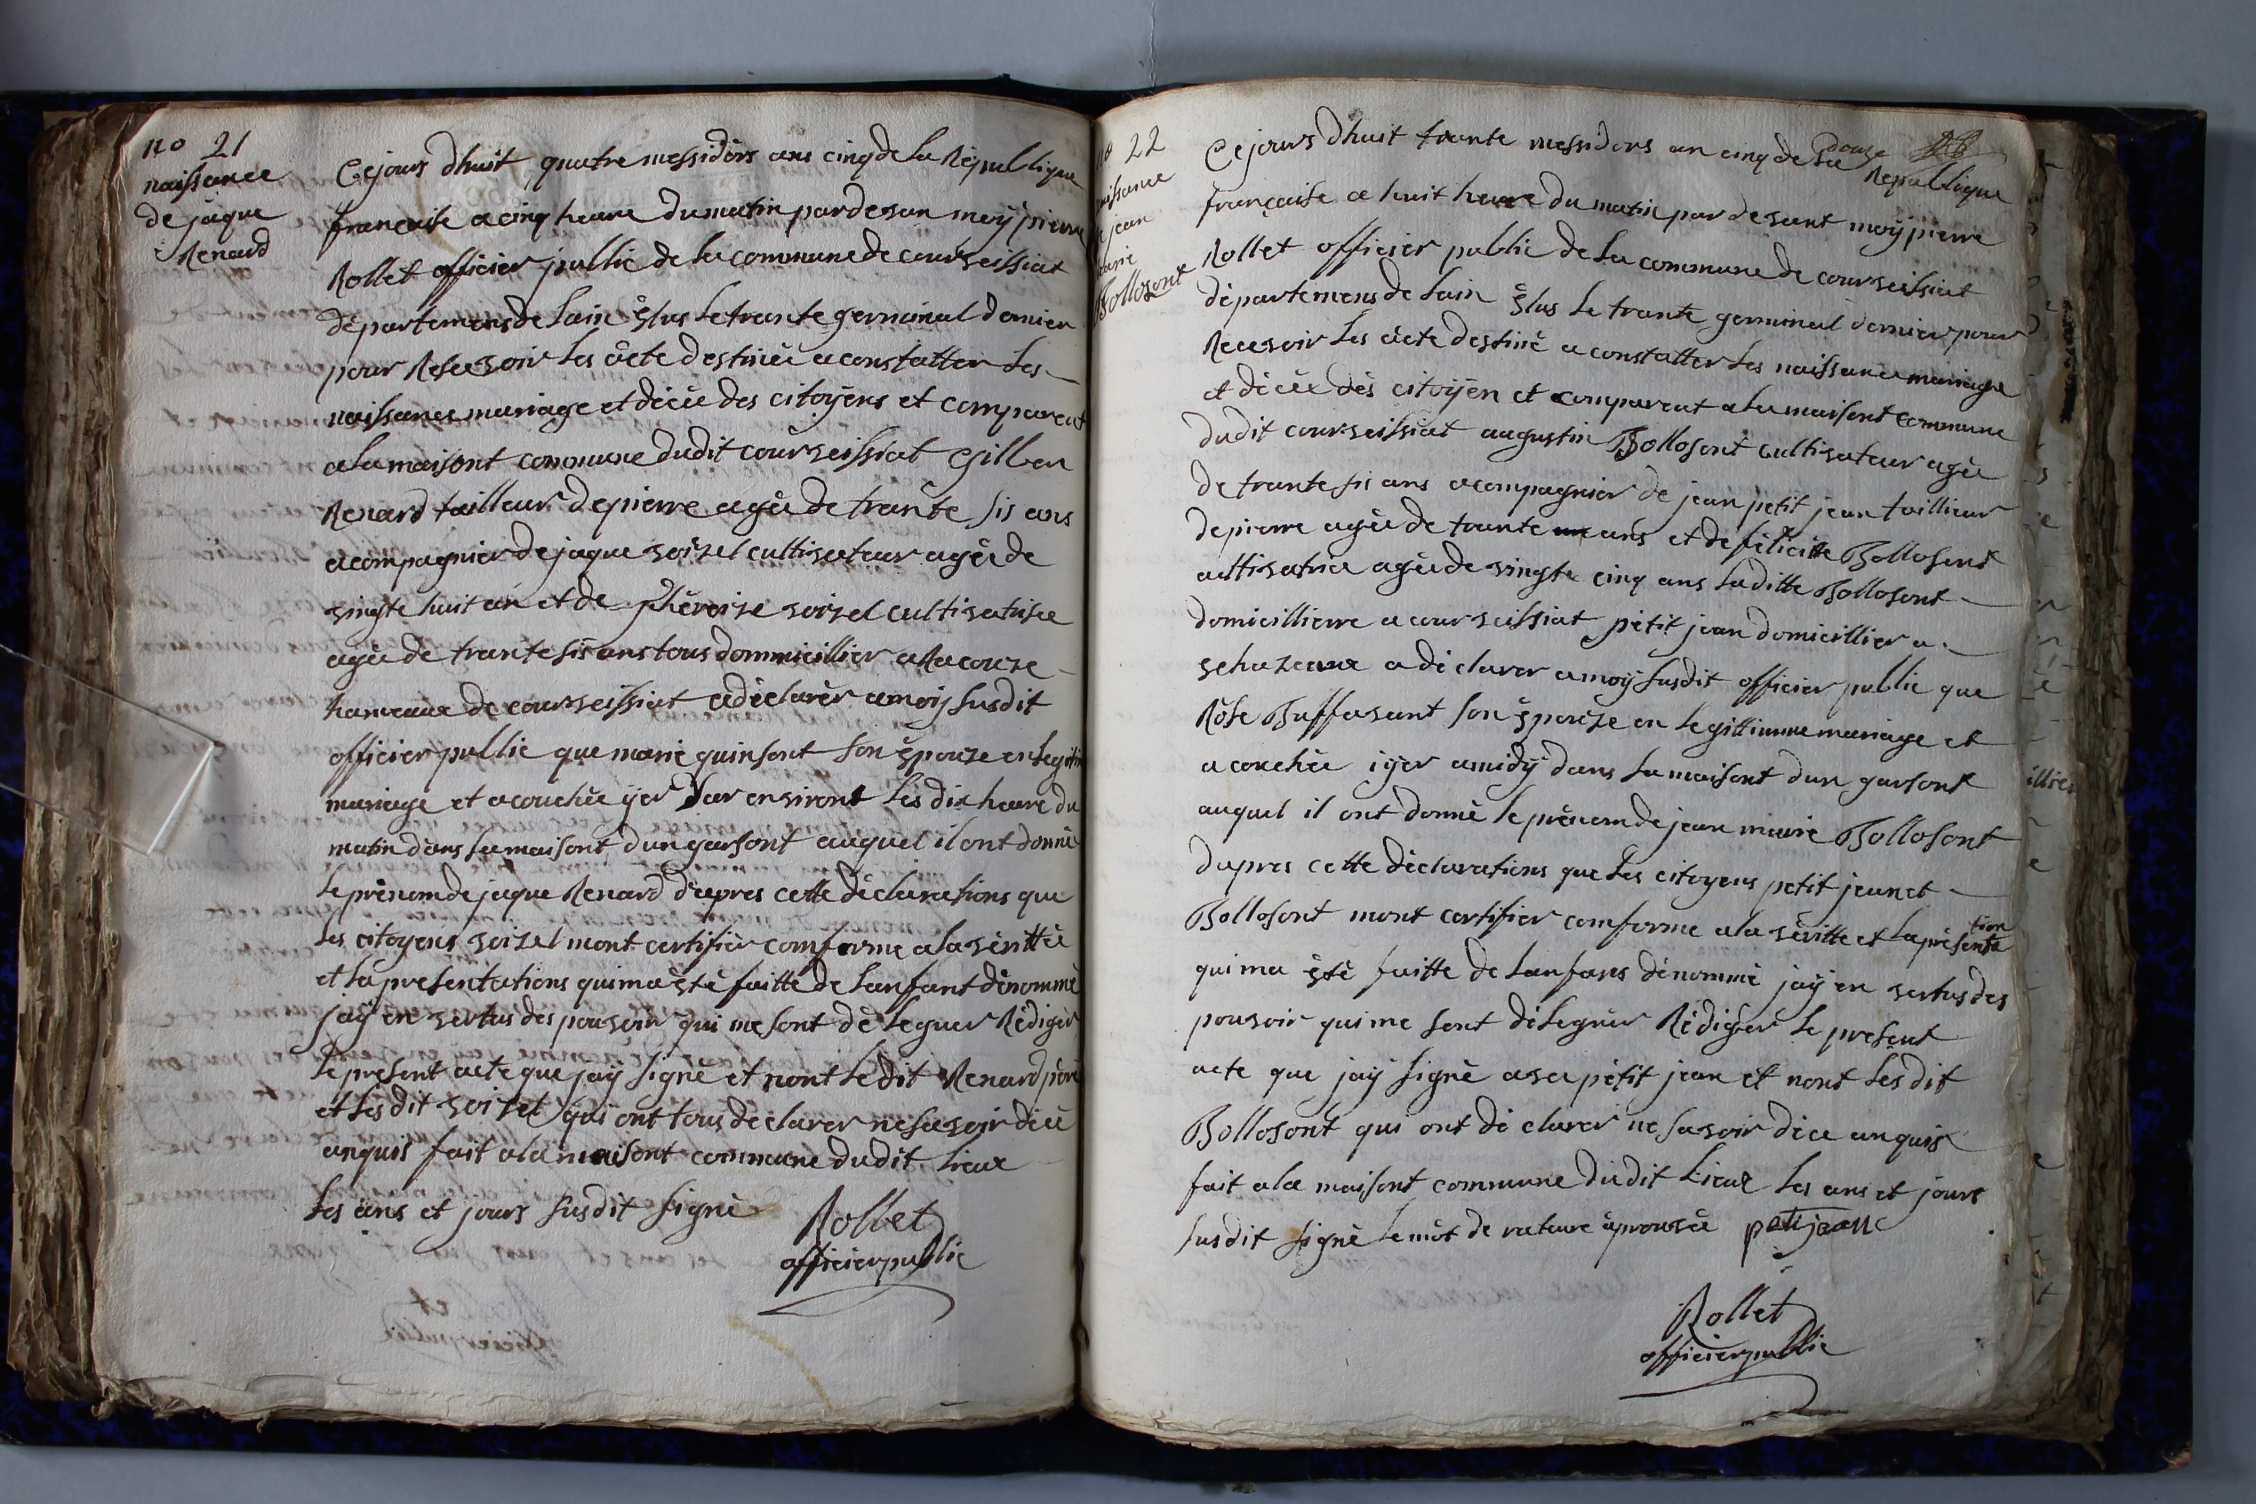 no 21
naissance
de jaque
Renard
Cejours dhuit quatre messidors ans cinq de la Republique
francaise a cinq heure du matin pardevan moy pierre
Rollet officier public de la commune de courseissiat
départemens de lain élus le trante germinal dernier
pour Resesvoir les acte destinée a constatter les
naissance mariage et décée des citoyens et comparent
a la maisont commune dudit courseissiat Gilber
Renard tailleur de pierre agée de trante sis ans
acompagnier de jaque voizel cultivateur agée de
vingte huit an et de théreize voizel cultivatrise
agée de trante sis ans tous dommicillier a Racouze
hameaux de courseissiat a déclarer a moy susdit
officier public que marie guinsont son épouze en legitime
mariage et acouchée yer sur environt les dix heure du
matin dans sa maisont dun garsont auquel il ont donné
le prénom de jaque Renard dapres cette déclarations que
les citoyens voizel mont certifier comforme a la véritté
et la presentations qui ma été faitte de lanfant dénommé
jay en vertus des pouvoir qui me sont déleguer Rédiger
le présent acte que jay signé et nont ledit Renard pere
et les dit voizel qui ont tous déclarer ne savoir dece
anquis fait a la maisont commune dudit lieux
les ans et jours susdit signé
Rollet
officier public
no 22
naissance
de jean
marie
Bollosont
douze
Cejours dhuit trante messidors an cinq de la Republique
française a huit heure du matin pardevant moy pierre
Rollet officier public de la commune de courseissiat
départemens de lain élus le trante germinal dernier pour
Recevoir les acte destiné a constatter les naissance mariage
et décée des citoyen et comparent a la maisont commune
dudit courseissiat augustin Bollosont cultivateur agée
de trante sis ans acompagnier de jean petit jean taillieur
de pierre agée de trante ans et de félicitte Bollosont
cultivatrice agée de vingte cinq ans laditte Bollosont
domicillierre a courseissiat petit jean domicillier a
chazeaux a déclarer a moy susdit officier public que
Rose Buffavant son épouze en legittimme mariage et
acouchée iyer a midy dans sa maisont dun garsont
auquel il ont donné le prénom de jean marie Bollosont
dapres cette déclarations que les citoyens petit jean et
Bollosont mont certifier comforme a la véritte et la présenta
tion
qui ma été faitte de lanfans dénommé jay en vertus des
pouvoir qui me sont déleguer Rédiger le présent
acte que jay signé avec petit jean et nont les dit
Bollosont qui ont déclarer ne savoir dece anquis
fait a la maisont commune dudit lieux les ans et jours
susdit signé le mot de rature aprouvée petijean
Rollet
officier public